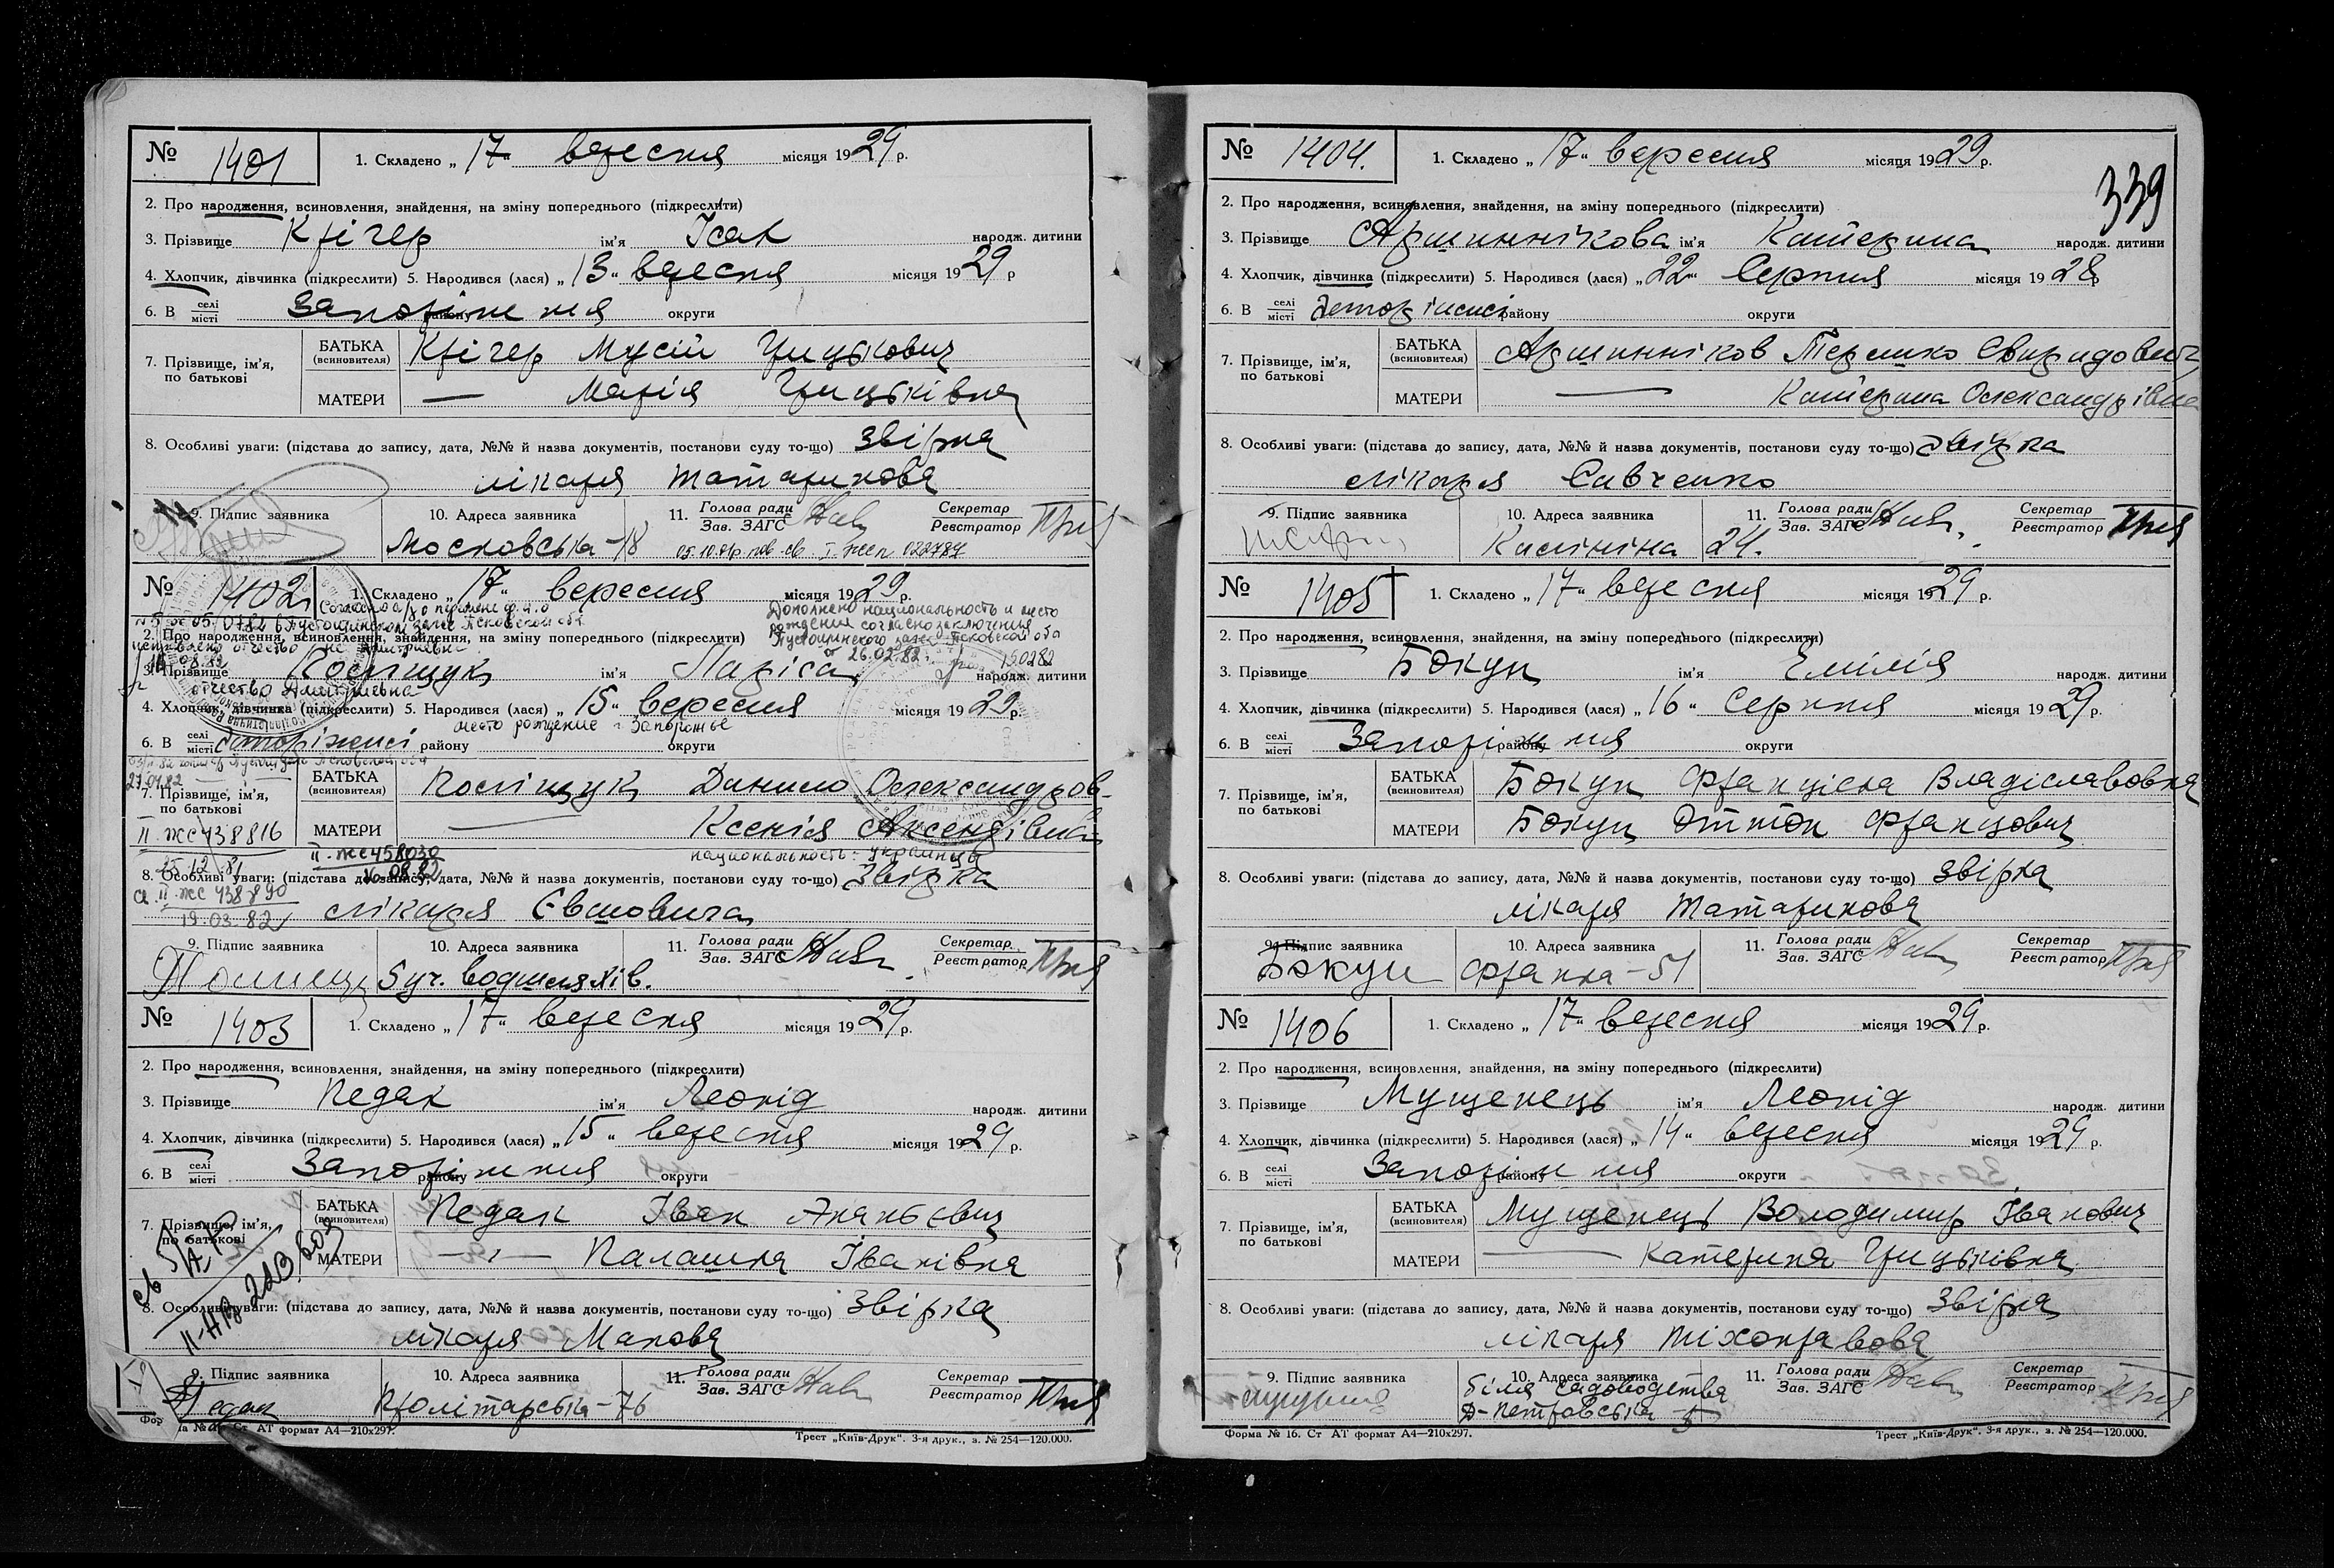 № 1401 1. Складено „ 17 “ вересня місяця 1929 р.
2. Про народження, всиновлення, знайдення, на зміну попереднього (підкреслити)
3. Прізвище Крігер ім'я Ісак народж. дитини
4. Хлопчик, дівчинка (підкреслити) 5. Народився (лася) „ 13 “ вересня місяця 1929 р
6. В селі місті Запоріжжя району округи
7. Прізвище, ім'я, по батькові БАТЬКА (всиновителя) Крігер Мусій Грицькович
МАТЕРИ — Марія Грицьківна
8. Особливі уваги: (підстава до запису, дата, №№ й назва документів, постанови суду то-що) Звірка
лікаря Татаринова
9. Підпис заявника 10. Адреса заявника 11. Голова ради Зав. ЗАГС Секретар Реєстратор
Московська-18 05.10.91р. пов. св. I-жсп 022784
№ 1402 1. Складено „ 17 “ вересня місяця 1929 р.
Согласно а/з о перемене ф.и.о
№ 5 от 05.07.82 в Пустошинском загсе Псковской обл.
Дополнено национальность и место
рождения согласно заключения
Пустошинского загса Псковской обл
от 26.02.82г.
2. Про народження, всиновлення, знайдення, на зміну попереднього (підкреслити)
исправлено отчество
3. Прізвище Поліщук ім'я Ларіса народж. дитини
отчество Дмитриевна
4. Хлопчик, дівчинка (підкреслити) 5. Народився (лася) „ 15 “ вересня місяця 1929 р.
место рождение г. Запорожье
6. В селі місті Запоріжжі району округи
27.01.82
7. Прізвище, ім'я, по батькові БАТЬКА (всиновителя) Поліщук Данило Олександров-
II-жс 438816 МАТЕРИ — Ксенія Аксентіївна
25.12.81 II-жс 458030 национальность: украинцы
16.08.82
8. Особливі уваги: (підстава до запису, дата, №№ й назва документів, постанови суду то-що) Звірка
св. II-жс 438890
19.03.82 лікаря Євшовича
9. Підпис заявника 10. Адреса заявника 11. Голова ради Зав. ЗАГС Секретар Реєстратор
Буч. водшляхів.
№ 1403 1. Складено „ 17 “ вересня місяця 1929 р.
2. Про народження, всиновлення, знайдення, на зміну попереднього (підкреслити)
3. Прізвище Педак ім'я Леонід народж. дитини
4. Хлопчик, дівчинка (підкреслити) 5. Народився (лася) „ 15 “ вересня місяця 1929 р.
6. В селі місті Запоріжжя району округи
7. Прізвище, ім'я, по батькові БАТЬКА (всиновителя) Педак Іван Ананьєвич
МАТЕРИ —„— Палашка Іванівна
8. Особливі уваги: (підстава до запису, дата, №№ й назва документів, постанови суду то-що) Звірка
лікаря Махова
9. Підпис заявника 10. Адреса заявника 11. Голова ради Зав. ЗАГС Секретар Реєстратор
Педак Пролітарська-76
Трест „Київ-Друк“. 3-я друк., з. № 254—120.000.
№ 1404. 1. Складено „ 17 “ вересня місяця 1929 р.
339
2. Про народження, всиновлення, знайдення, на зміну попереднього (підкреслити)
3. Прізвище Аршиннікова ім'я Катерина народж. дитини
4. Хлопчик, дівчинка (підкреслити) 5. Народився (лася) „ 22 “ Серпня місяця 1928 р
6. В селі місті Запоріжжі району округи
7. Прізвище, ім'я, по батькові БАТЬКА (всиновителя) Аршинніков Терешко Свиридович
МАТЕРИ — Катерина Олександрівна
8. Особливі уваги: (підстава до запису, дата, №№ й назва документів, постанови суду то-що) Звірка
лікаря Савченко
9. Підпис заявника 10. Адреса заявника 11. Голова ради Зав. ЗАГС Секретар Реєстратор
Калініна 24.
№ 1405 1. Складено „ 17 “ вересня місяця 1929 р.
2. Про народження, всиновлення, знайдення, на зміну попереднього (підкреслити)
3. Прізвище Бокун ім'я Емілія народж. дитини
4. Хлопчик, дівчинка (підкреслити) 5. Народився (лася) „ 16 “ Серпня місяця 1929 р.
6. В селі місті Запоріжжя району округи
7. Прізвище, ім'я, по батькові БАТЬКА (всиновителя) Бокун Францісна Владіславовна
МАТЕРИ Бокун Оттон Францович
8. Особливі уваги: (підстава до запису, дата, №№ й назва документів, постанови суду то-що) Звірка
лікаря Татаринова
9. Підпис заявника 10. Адреса заявника 11. Голова ради Зав. ЗАГС Секретар Реєстратор
Бокун Франка-51
№ 1406 1. Складено „ 17 “ вересня місяця 1929 р.
2. Про народження, всиновлення, знайдення, на зміну попереднього (підкреслити)
3. Прізвище Мущенець ім'я Леонід народж. дитини
4. Хлопчик, дівчинка (підкреслити) 5. Народився (лася) „ 14 “ вересня місяця 1929 р.
6. В селі місті Запоріжжя району округи
7. Прізвище, ім'я, по батькові БАТЬКА (всиновителя) Мущенець Володимир Іванович
МАТЕРИ — Катерина Грицьківна
8. Особливі уваги: (підстава до запису, дата, №№ й назва документів, постанови суду то-що) Звірка
лікаря Тіхонравова
9. Підпис заявника 10. Адреса заявника 11. Голова ради Зав. ЗАГС Секретар Реєстратор
біля садоводства
Д-Петровська - 5
Форма № 16. Ст АТ формат А4—210х297. Трест „Київ-Друк“. 3-я друк., з. № 254—120.000.